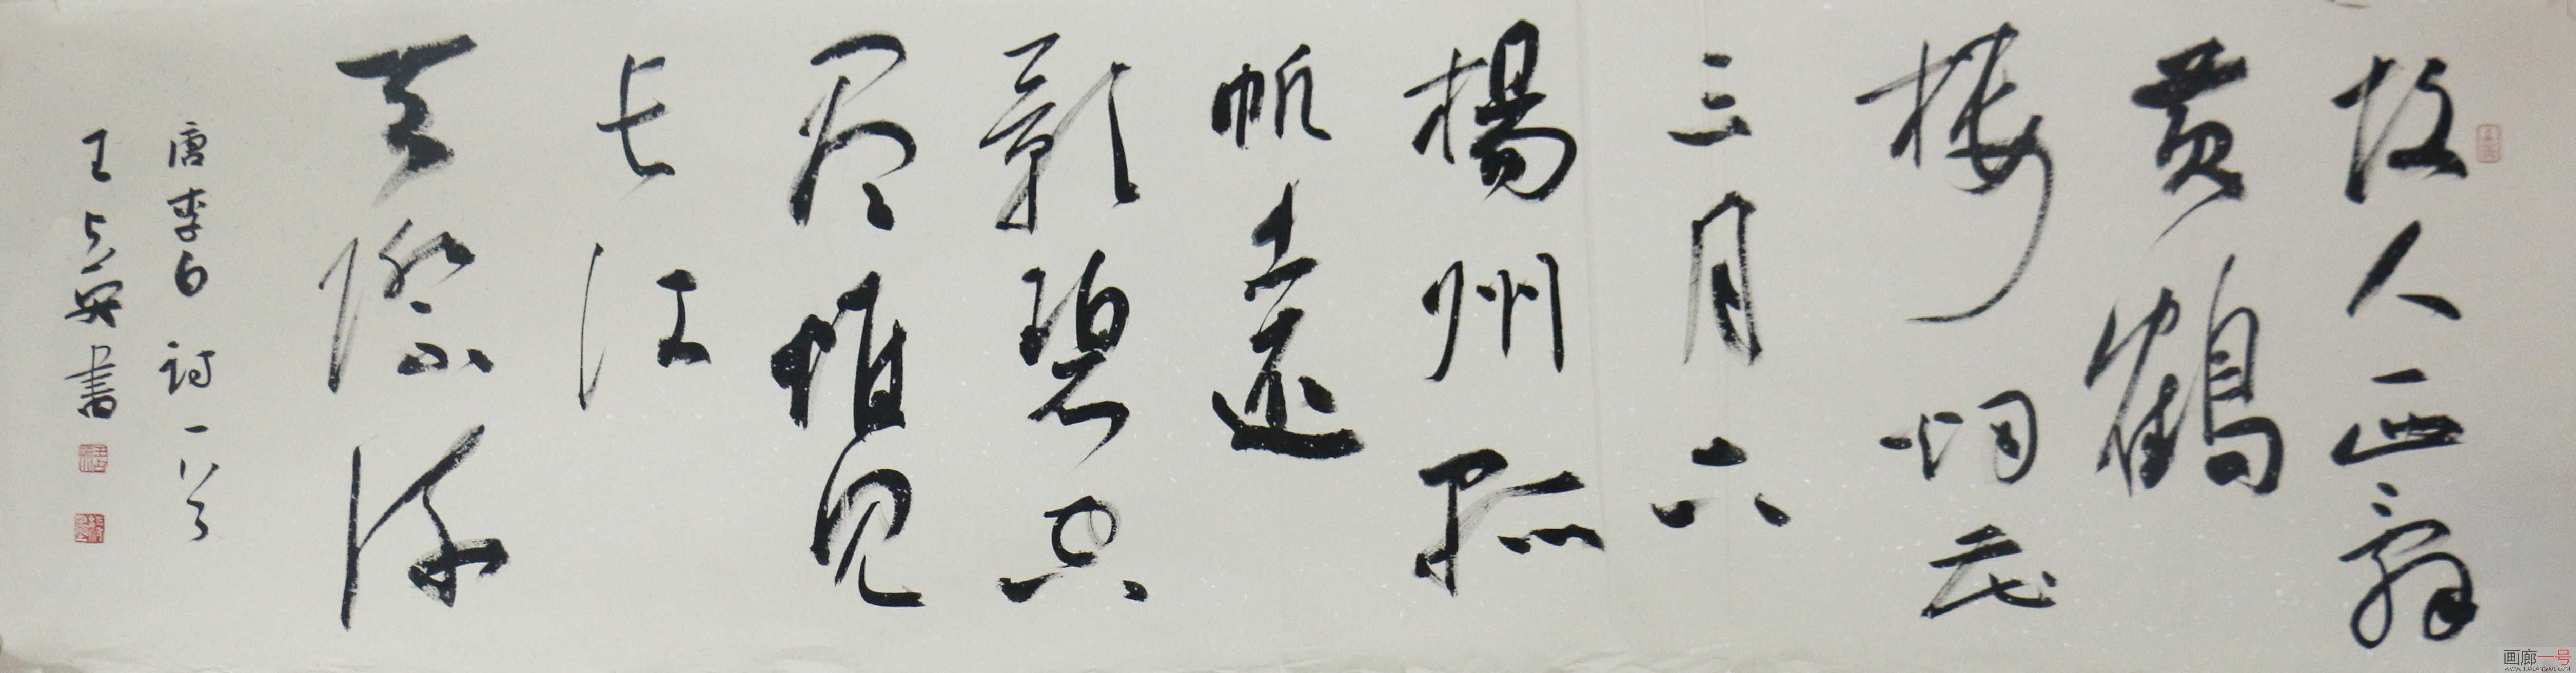 故人西辞
黄鶴
楼烟花
三月下
楊州孤
帆遠
影碧空
尽惟见
长江
天際流
唐李白诗一首
王占英書
画廊一号